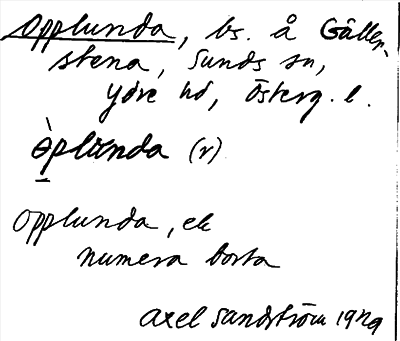 Opplunda, bs. å Gäller-
stena, Sunds sn,
Ydre hd, Österg. l.
òplùnda (r)
Opplunda, ek
numera borta
Axel Sandström 1929